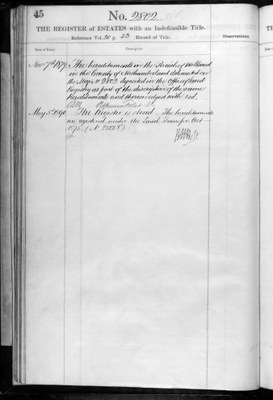 45
No. 2802
THE REGISTER of ESTATES with an Indefeasible Title.
Reference Vol. 30 p. 23 Record of Title.
Observations.
Date of Entry.
Description.
Nov 7th 1872
The hereditaments in the Parish of
in the County of Northumberland delineated on
the Map No 2802 deposited in the Office of Land
Registry as part of the description of the same
Hereditaments and therein edged with red.
May 5 1890
The Register is closed. The hereditaments
are registered under the Land Transfer Act
1875.